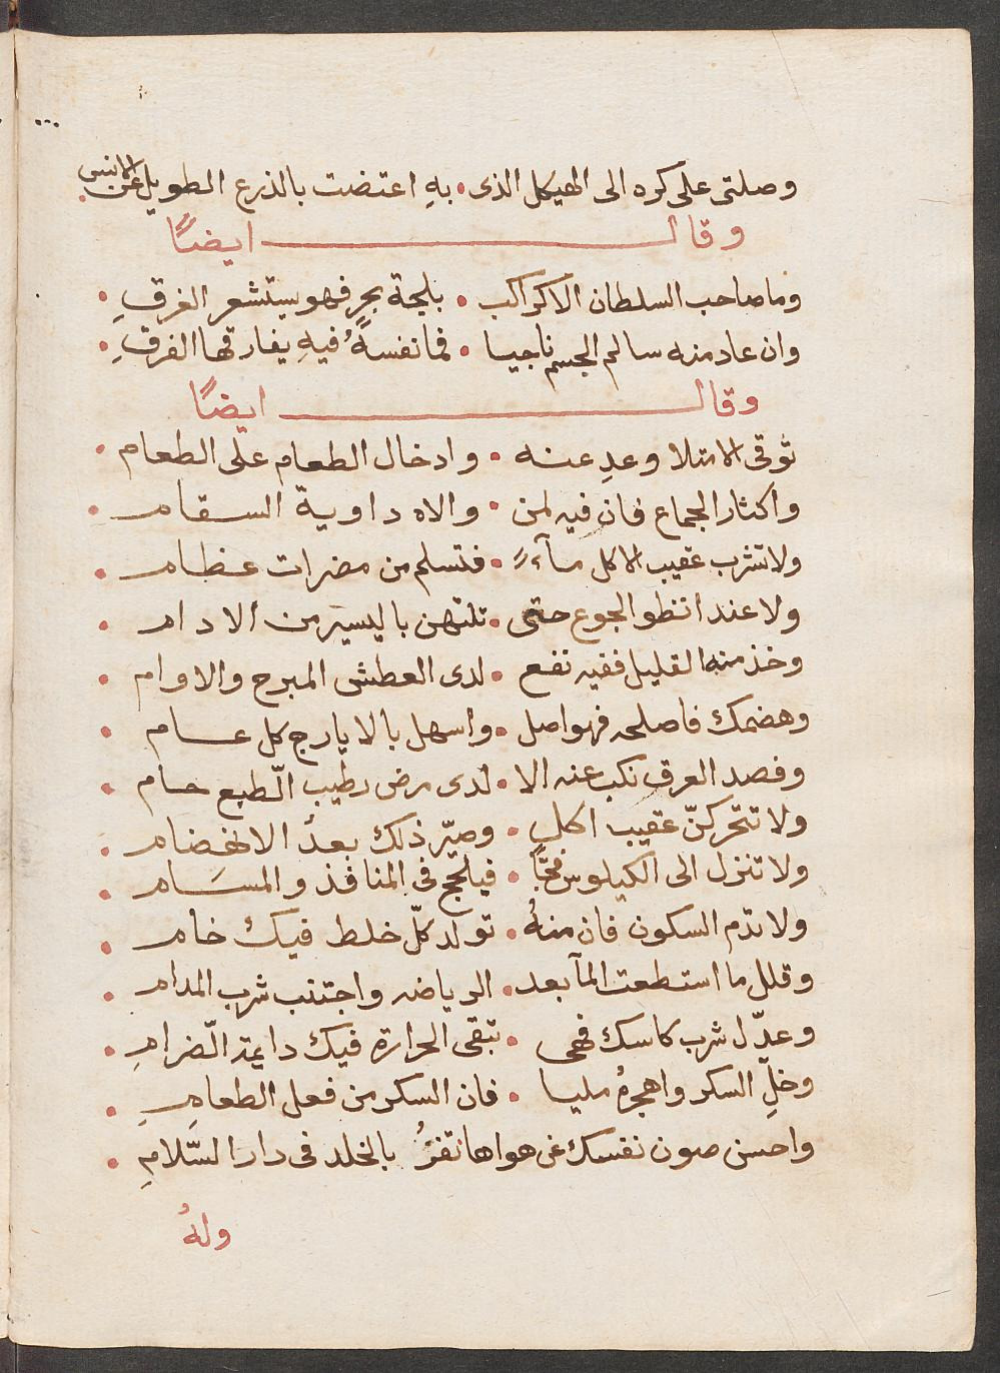 وصلتى على كره الى الهيكل الذى • بهِ اعتضت بالذرع الطويل عن الانس
وقال ايضًا
وما صاحب السلطان الا كراكب • بلجة بحرٍ فهو يستشعر الغرقِ •
وان عاد منه سالم الجسم ناجيا • فما نفسهُ فيهِ يفارقها الفرقِ •
وقال ايضًا
توقى الامتلا وعدِ عنه • وادخال الطعام على الطعام •
واكثار الجماع فان فيه لمن • والاه داوية السقام •
ولا تشرب عقيب الاكل مآءً • فتسلم من مضرات عظام •
ولا عند انطو الجوع حتى • تلتهن باليسير من الادام •
وخذ منه القليل ففيه نفع • لدى العطش المبرح والاوام •
وهضمك فاصلحه فهو اصل • واسهل بالايارج كل عام •
وفصد العرق نكب عنه الا • لدى مرض رطيب الّطبع حام •
ولا تتحركنّ عقيب اكل • وصيّر ذلك بعد الانهضام •
ولا تنزل الى الكيلوس فجًا • فيلحج فى المنافذ والمسام •
ولا تدم السكون فان منهُ • تولد كلّ خلط فيك خام •
وقلل ما استطعت المآ بعد • الرياضه واجتنب شرب المدام •
وعدّل شرب كاسك فهى • تبقى الحرارة فيك دايمة الّضرامِ •
وخلّ السكر واهجرهُ مليا • فان السكر من فعل الطعامِ •
واحسن صون نفسك عن هواها تفزُ بالخلد فى دار السّلامِ •
ولهُ